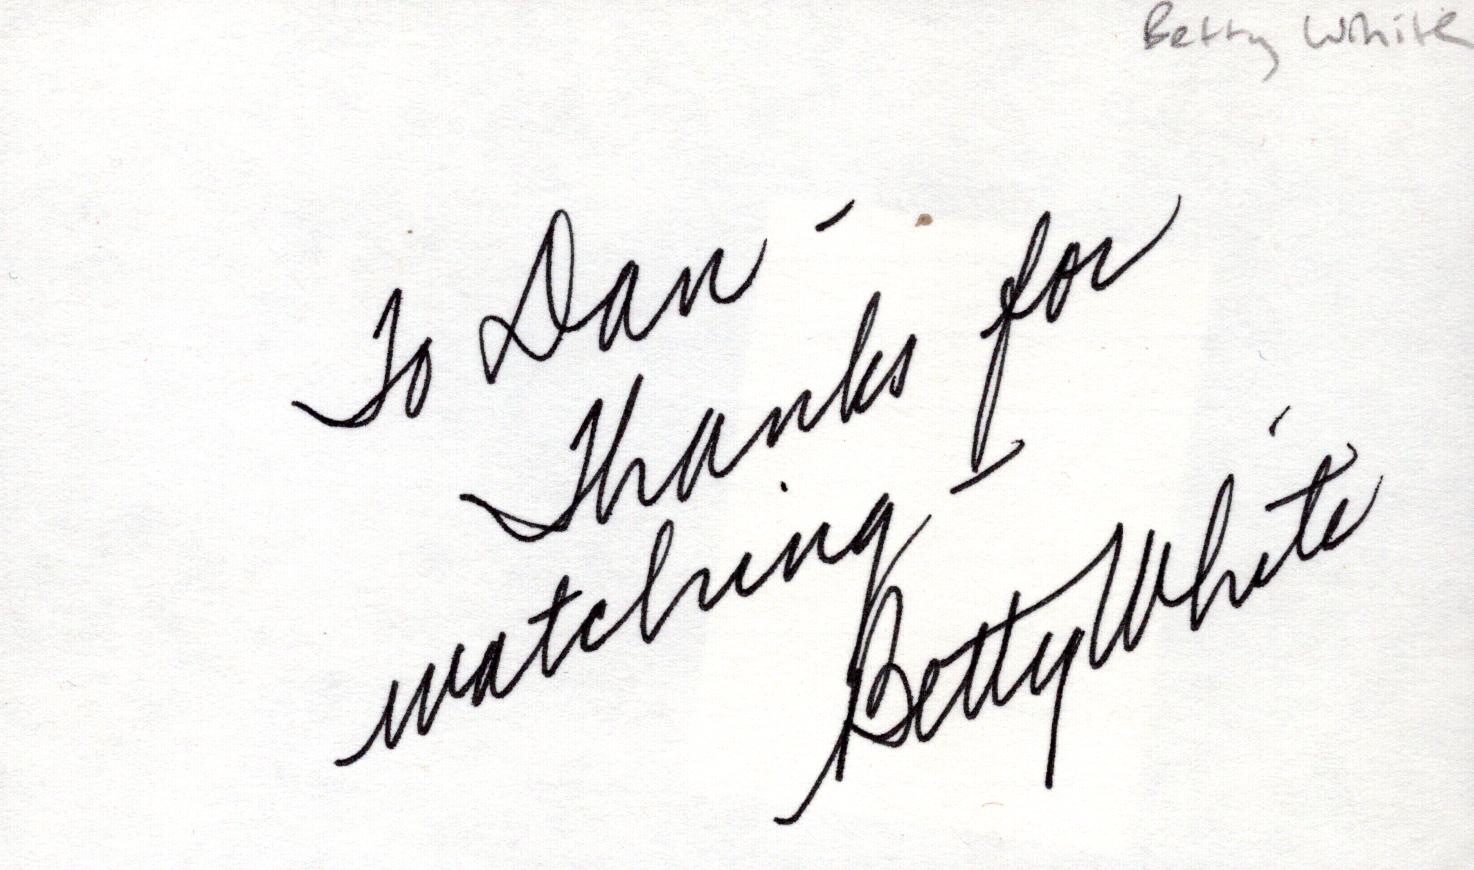 Betty White
To Dan -
Thanks for
watching -
Betty White